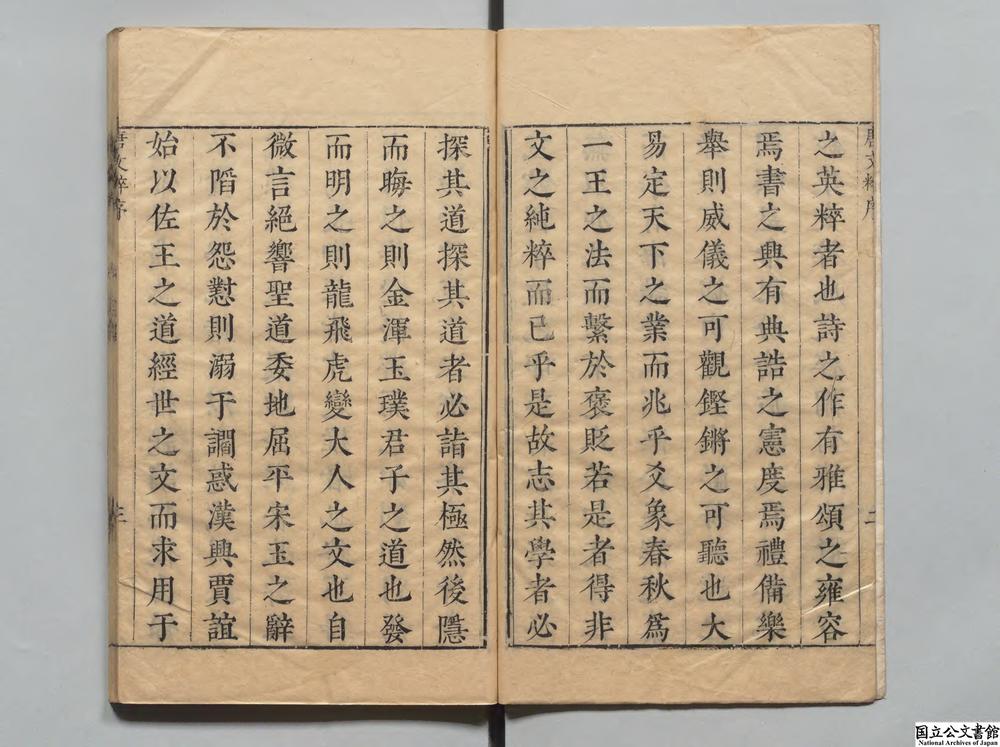 唐文粹序
二
之英粹者也詩之作有雅頌之雍容
焉書之興有典誥之憲度焉禮備樂
舉則威儀之可觀鏗鏘之可聽也大
易定天下之業而兆乎爻象春秋爲
一王之法而繫於褒貶若是者得非
文之純粹而已乎是故志其學者必
探其道探其道者必詣其極然後隱
而晦之則金渾玉璞君子之道也發
而明之則龍飛虎變大人之文也自
微言絕響聖道委地屈平宋玉之辭
不䧟於怨懟則溺于讇惑漢興賈誼
始以佐王之道經世之文而求用于
唐文粹序
三
国立公文書館
National Archives of Japan